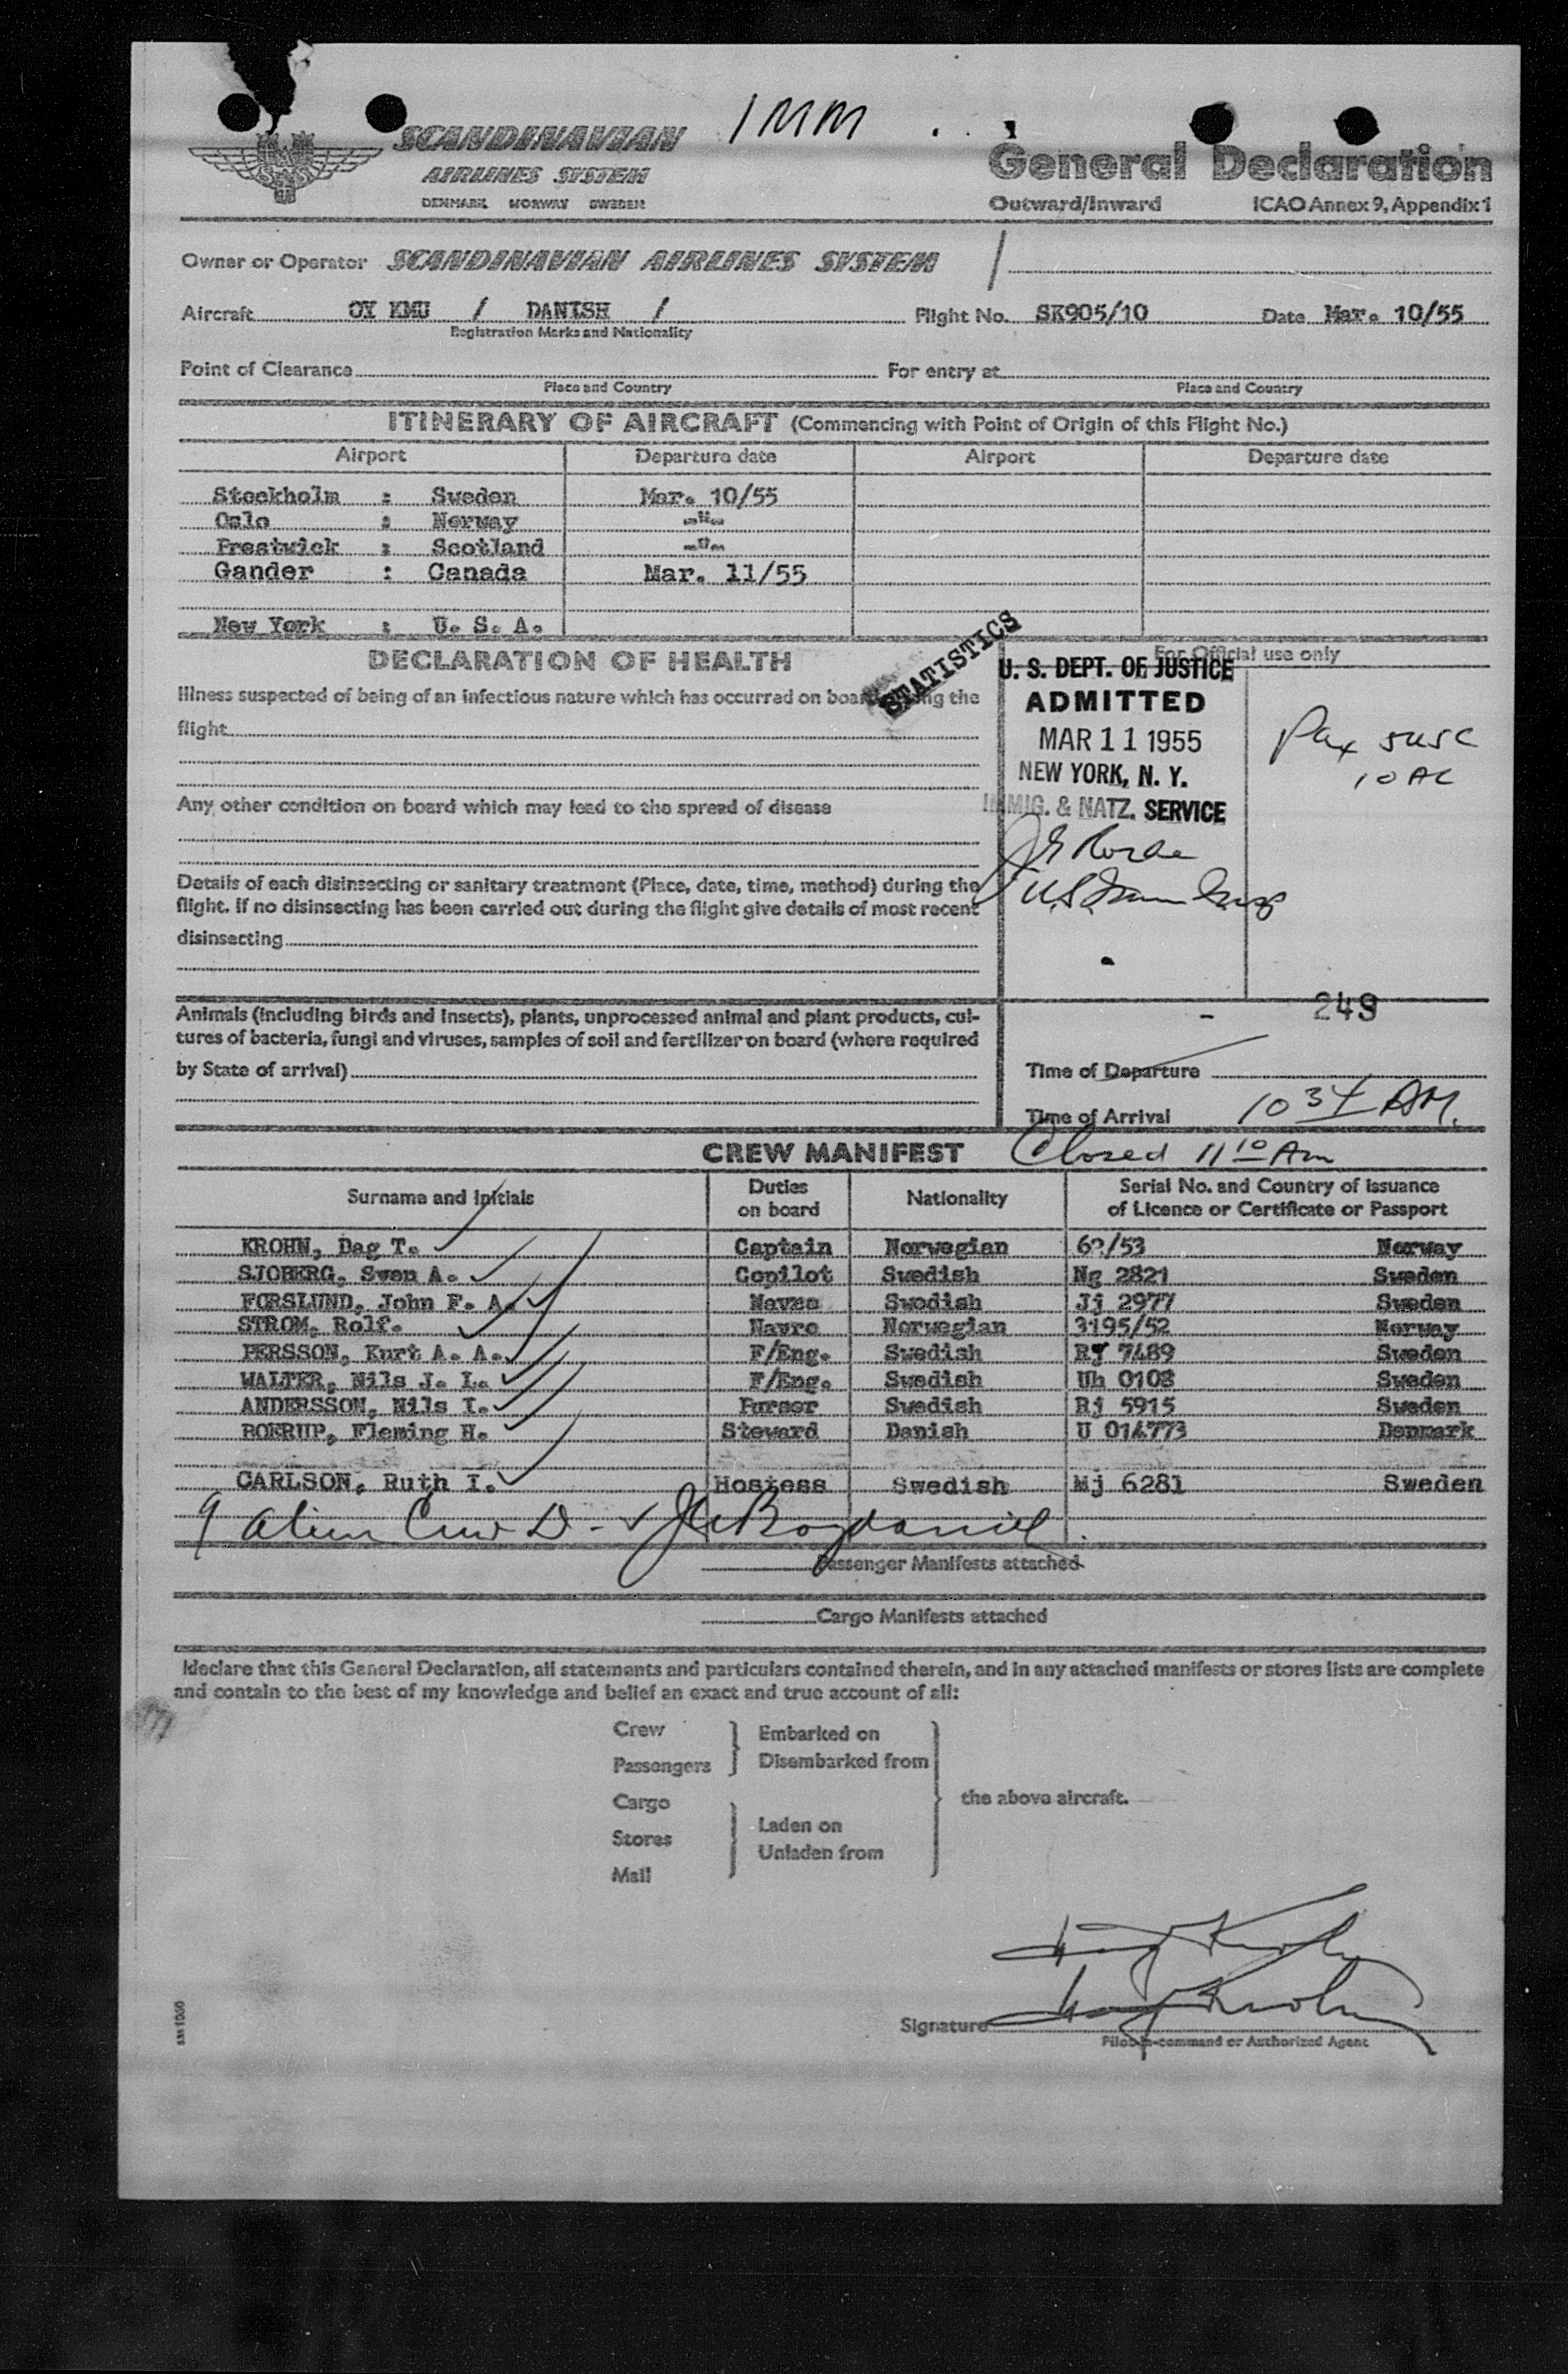 1 MM
SCANDINAVIAN
AIRLINES SYSTEM
DENMARK NORWAY SWEDEN
General Declaration
Outward/Inward ICAO Annex 9, Appendix 1
Owner or Operator SCANDINAVIAN AIRLINES SYSTEM
Aircraft OY KMU / DANISH / Flight No. SK905/10 Date Mar. 10/55
Registration Marks and Nationality
Point of Clearance For entry at
Place and Country Place and Country
ITINERARY OF AIRCRAFT (Commencing with Point of Origin of this Flight No.)
Airport Departure date Airport Departure date
Stockholm : Sweden Mar. 10/55
Oslo : Norway -"-
Prestwick : Scotland -"-
Gander : Canada Mar. 11/55
New York : U. S. A.
STATISTICS
DECLARATION OF HEALTH
Illness suspected of being of an infectious nature which has occurred on board during the
flight
Any other condition on board which may lead to the spread of disease
Details of each disinsecting or sanitary treatment (Place, date, time, method) during the
flight. If no disinsecting has been carried out during the flight give details of most recent
disinsecting
For Official use only
U. S. DEPT. OF JUSTICE
ADMITTED
MAR 11 1955
NEW YORK, N. Y.
IMMIG. & NATZ. SERVICE
Pax 5 USC
10 AC
249
Animals (including birds and insects), plants, unprocessed animal and plant products, cul-
tures of bacteria, fungi and viruses, samples of soil and fertilizer on board (where required
by State of arrival)
Time of Departure
Time of Arrival 10 34 AM.
CREW MANIFEST Closed 11 10 Am
Surname and Initials Duties on board Nationality Serial No. and Country of issuance of Licence or Certificate or Passport
KROHN, Dag T. Captain Norwegian 62/53 Norway
SJOBERG, Sven A. Copilot Swedish Ng 2821 Sweden
FORSLUND, John F. A. Navre Swedish Jj 2977 Sweden
STROM, Rolf. Navre Norwegian 3195/52 Norway
PERSSON, Kurt A. A. F/Eng. Swedish Rj 7489 Sweden
WALTER, Nils J. L. F/Eng. Swedish Uh 0108 Sweden
ANDERSSON, Nils I. Purser Swedish Rj 5915 Sweden
ROERUP, Fleming H. Steward Danish U 014773 Denmark
CARLSON, Ruth I. Hostess Swedish Mj 6281 Sweden
9 alien Crew D-
Passenger Manifests attached
Cargo Manifests attached
I declare that this General Declaration, all statements and particulars contained therein, and in any attached manifests or stores lists are complete
and contain to the best of my knowledge and belief an exact and true account of all:
Crew
Passengers
Embarked on
Disembarked from
Cargo
Stores
Mail
Laden on
Unladen from
the above aircraft.
Dag Krohn
Signature Dag Krohn
Pilot-in-command or Authorized Agent